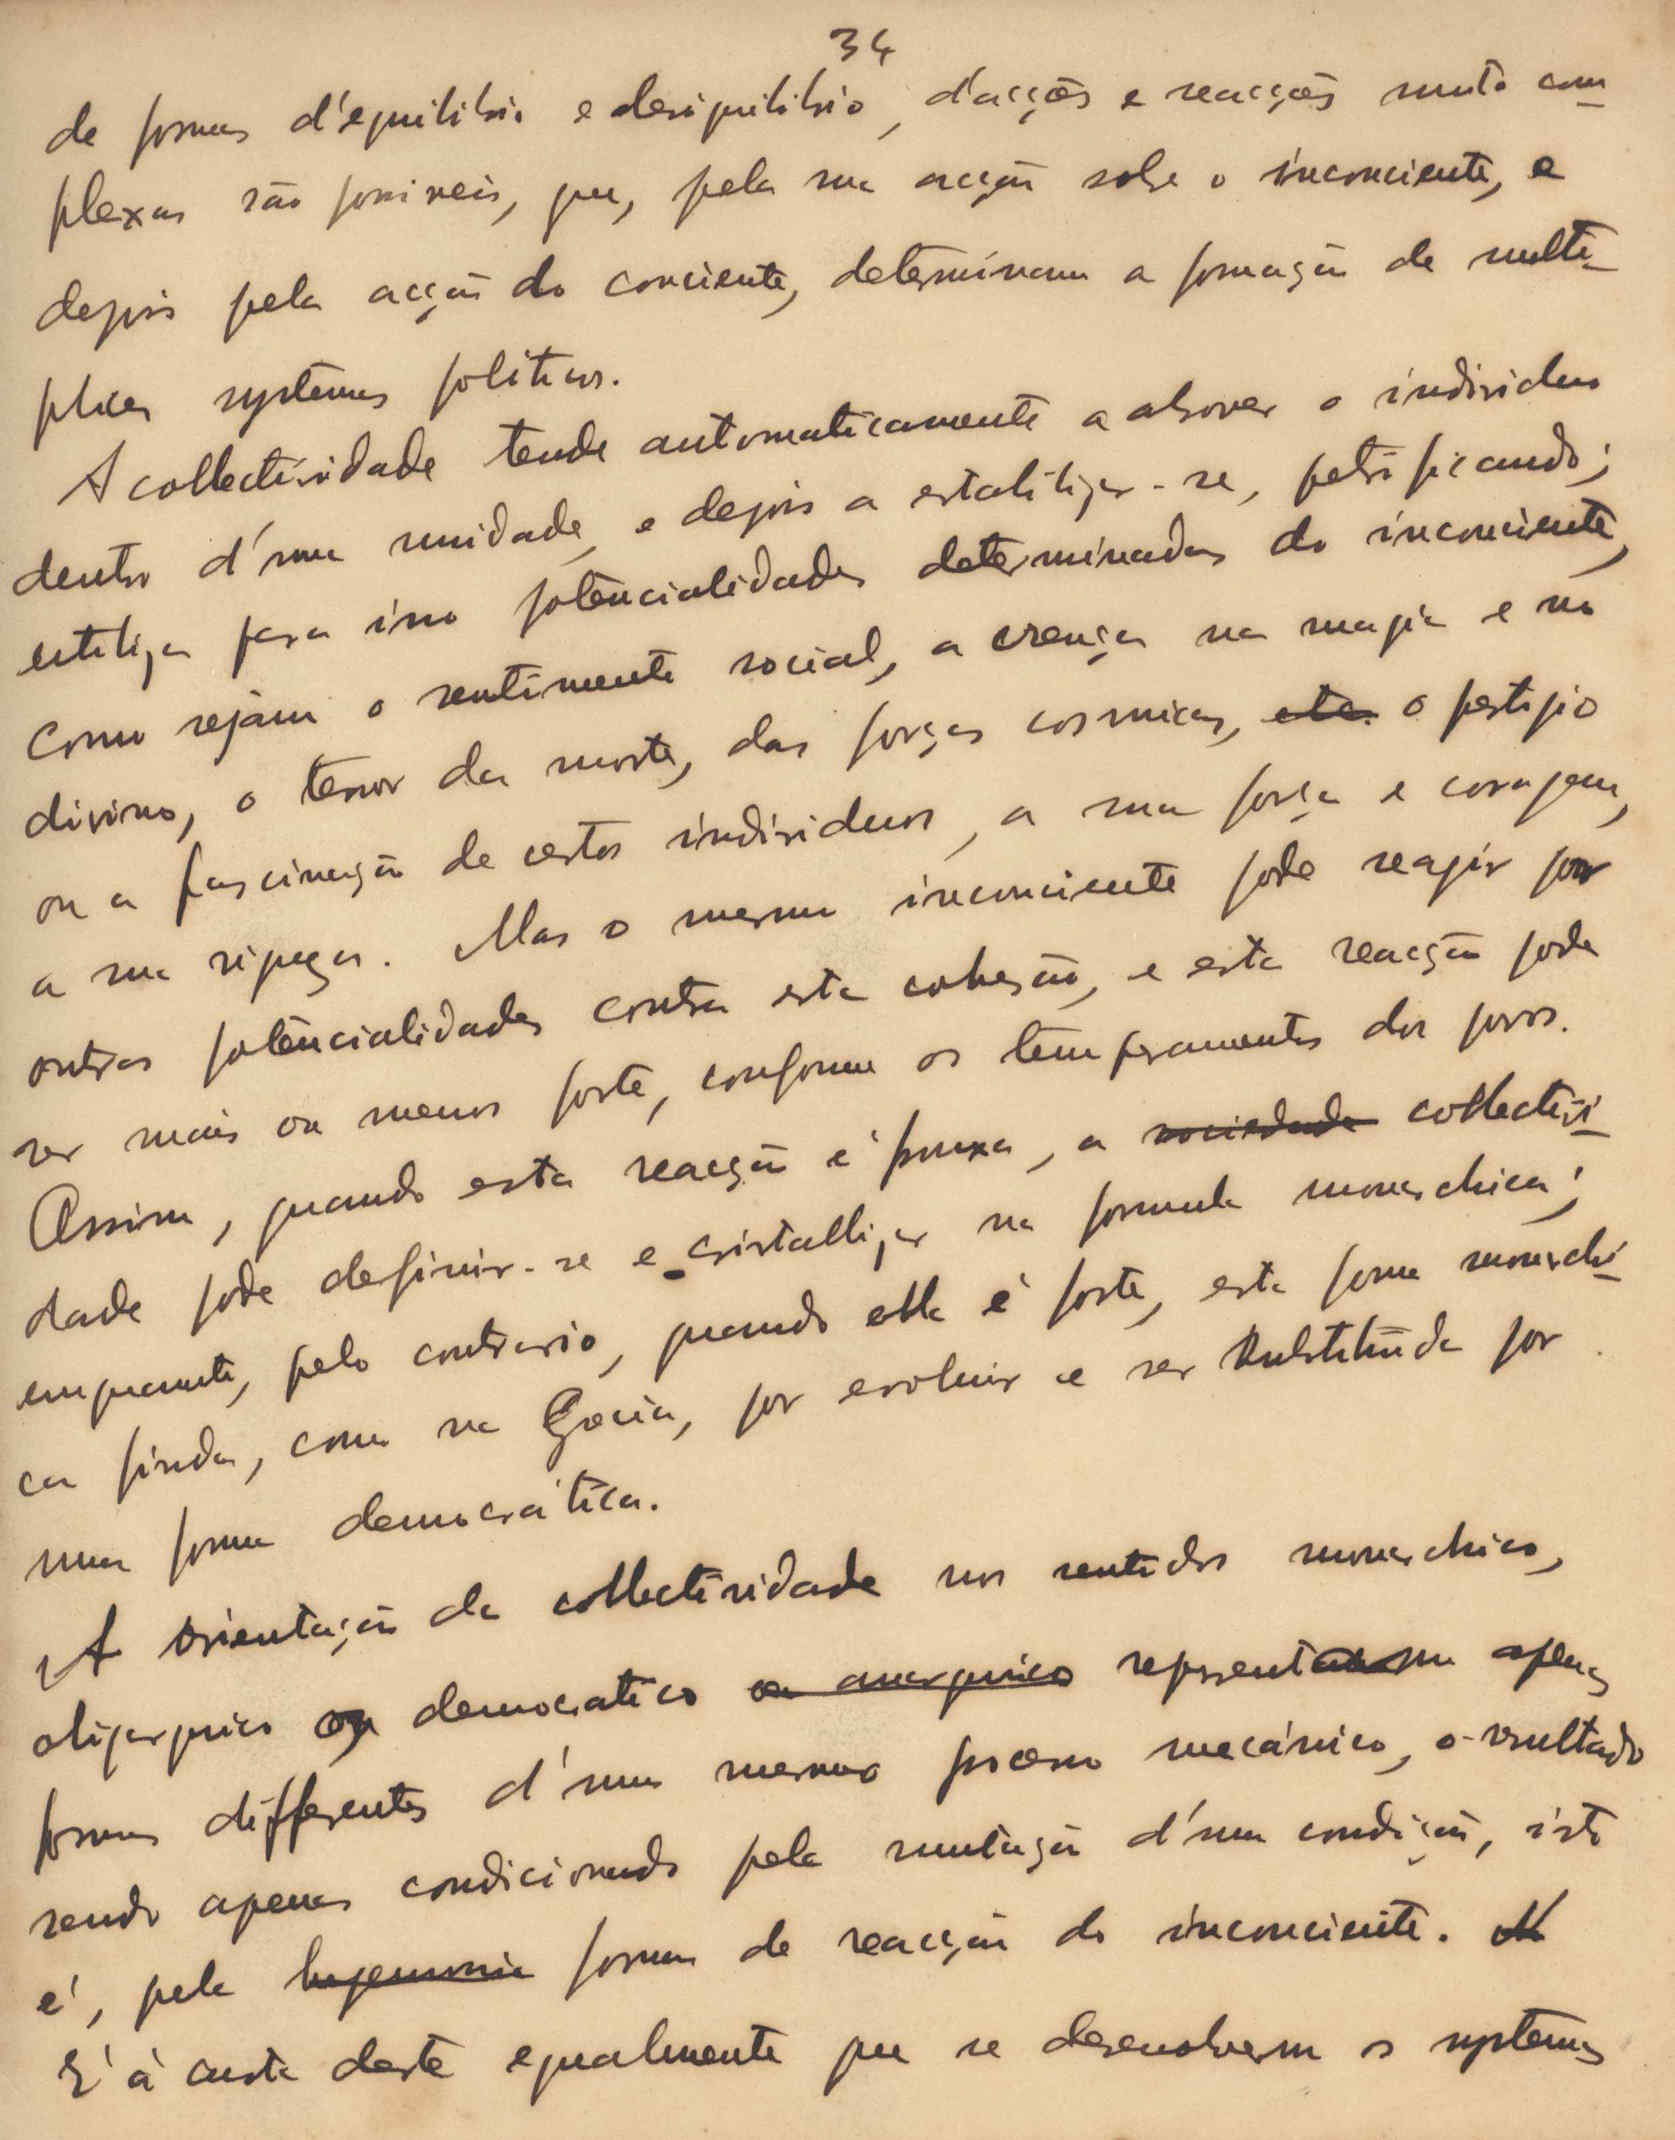 34
de formas d'equilibrio e desiquilibrio, d'acções e reacções muito com-
plexas são possiveis, que, pela sua acção sobre o inconciente, e
depois pela acção do conciente, determinam a formação de multi-
plices systemas politicos.
A collectividade tende automaticamente a absover o individuo
dentro d'uma unidade, e depois a estabilizar-se, petrificando;
utiliza para isso potencialidades determinadas do inconciente,
como sejam o sentimento social, a crença na magia e no
divino, o terror da morte, das forças cosmicas, etc. o prestigio
ou a fascinação de certos individuos, a sua força e coragem,
a sua riqueza. Mas o mesmo inconciente pode reagir por
outras potencialidades contra esta cohesão, e esta reacção pode
ser mais ou menos forte, conforme os temperamentos dos povos.
Assim, quando esta reacção é frouxa, a sociedade collectivi-
dade pode definir-se e cristallizar na formula monarchica;
emquanto, pelo contrario, quando ella é forte, esta forma monarchi-
ca finda, como na Grecia, por evoluir e ser substituida por
uma forma democrática.
A orientação da collectividade nos sentidos monarchico,
oligarquico ou democratico ou anarquico representam apenas
formas differentes d'um mesmo processo mecánico, o resultado
sendo apenas condicionado pela mutação d'uma condição, isto
é, pela hegemonia forma de reacção do inconciente. M
E' à custa deste egualmente que se desenvolverm os systemas